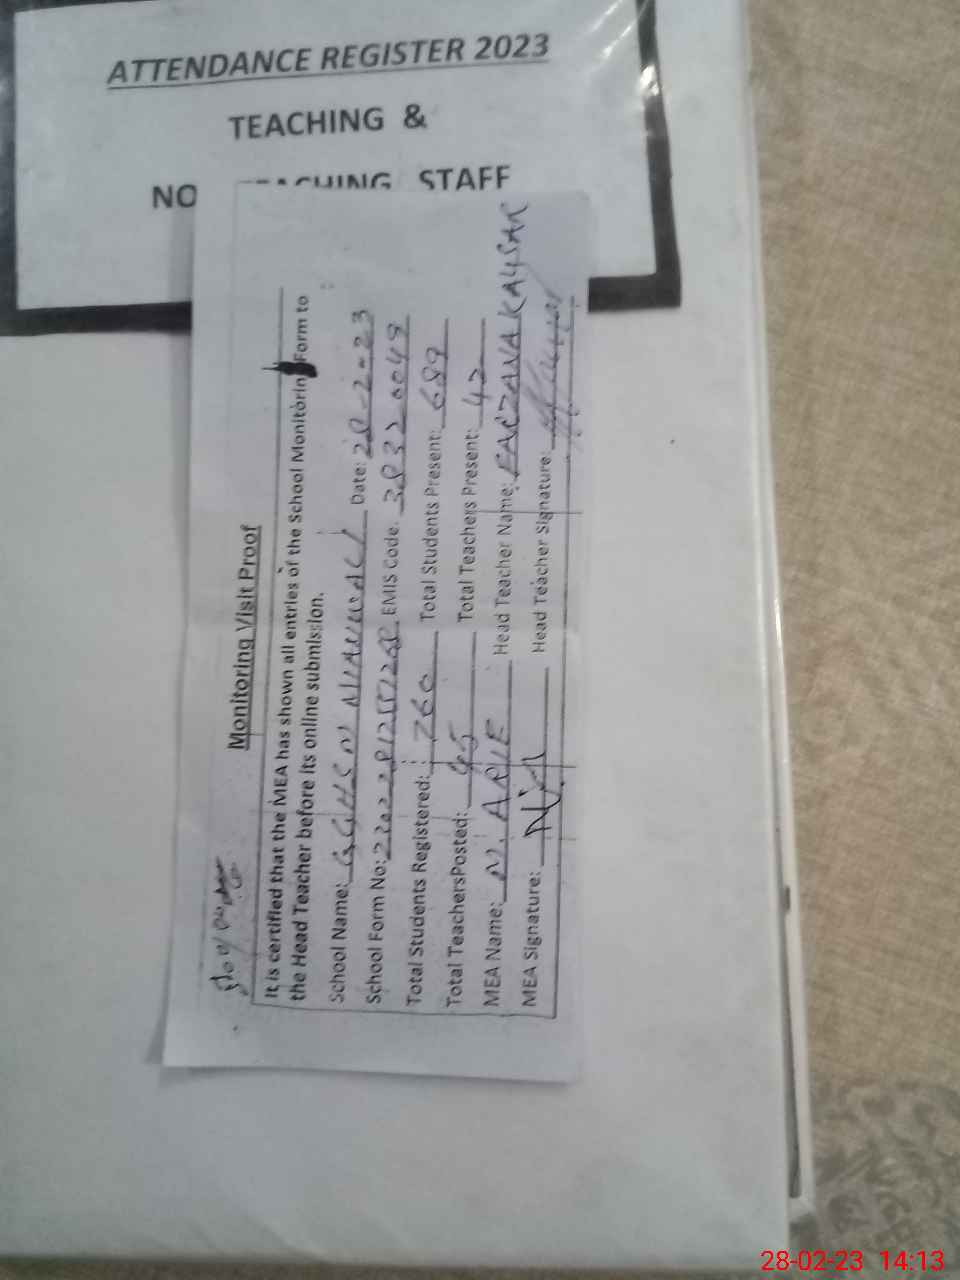 ATTENDANCE REGISTER 2023
TEACHING &
STAFF
Monitoring Visit Proof
It is certified that the MEA has shown all entries of the School Monitoring Form to
the Head Teacher before its online submission.
School Name: GGHS M Date: 28-2-23
School Form No: EMIS Code. 38320048
Total Students Registered: 760 Total Students Present: 689
Total TeachersPosted: 45 Total Teachers Present: 42
MEA Name: M. ARIF Head Teacher Name: FARZANA KAUSAR
MEA Signature: Head Teacher Signature:
28-02-23 14:13